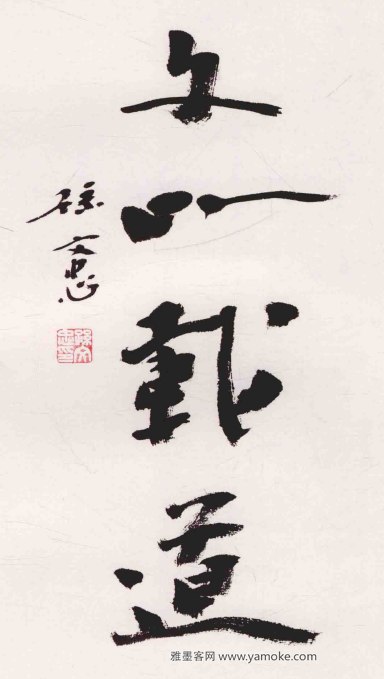 文以載道
孫文忠
孫文忠印
雅墨客网 www.yamoke.com